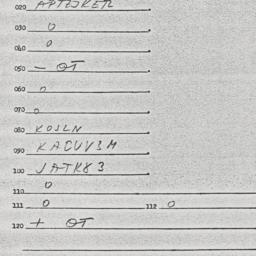 020 APTOJKER
030 0
040 0
050 - OT
060 0
070 0
080 KOJLN
090 KACUV3M
100 JATK83
110 0
111 0 112 0
120 + OT